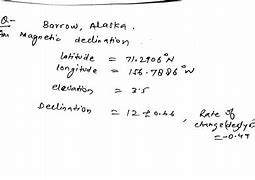 Q- Barrow, Alaska.
Magnetic declination.
latitude = 71.2906°N
longitude = 156.7886°W
elevation = 3.5
Declination = 12.± 0.46, Rate of
change(deg/y
= -0.4